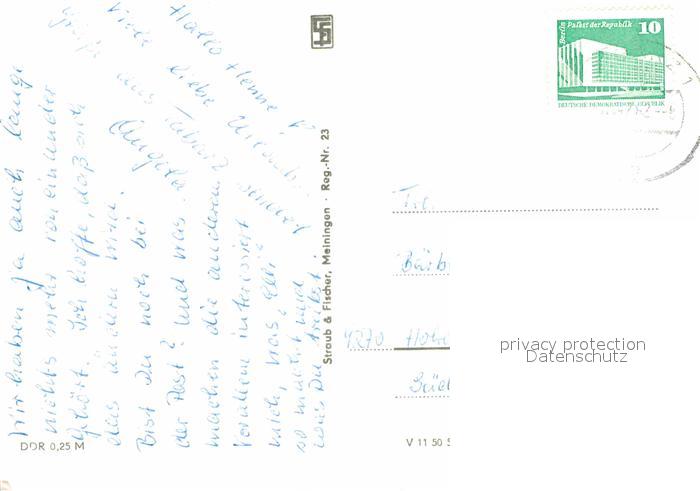 Hallo Henne!
Viele liebe Urlaubs-
grüße aus Tabarz sendet
Angela
Wir haben ja auch lange
nichts mehr voneinander
gehört. Ich hoffe, daß sich
das ändern wird.
Bist Du noch bei
der Post? Und was
machen die anderen?
Vor allem interessiert
mich, was Elli
so macht und
was Du treibst.
DDR 0,25 M
Straub & Fischer, Meiningen · Reg.-Nr. 23
V 11 50
Berlin Palast der Republik 10
DEUTSCHE DEMOKRATISCHE REPUBLIK
Frl.
Bärb
4270
privacy protection
Datenschutz